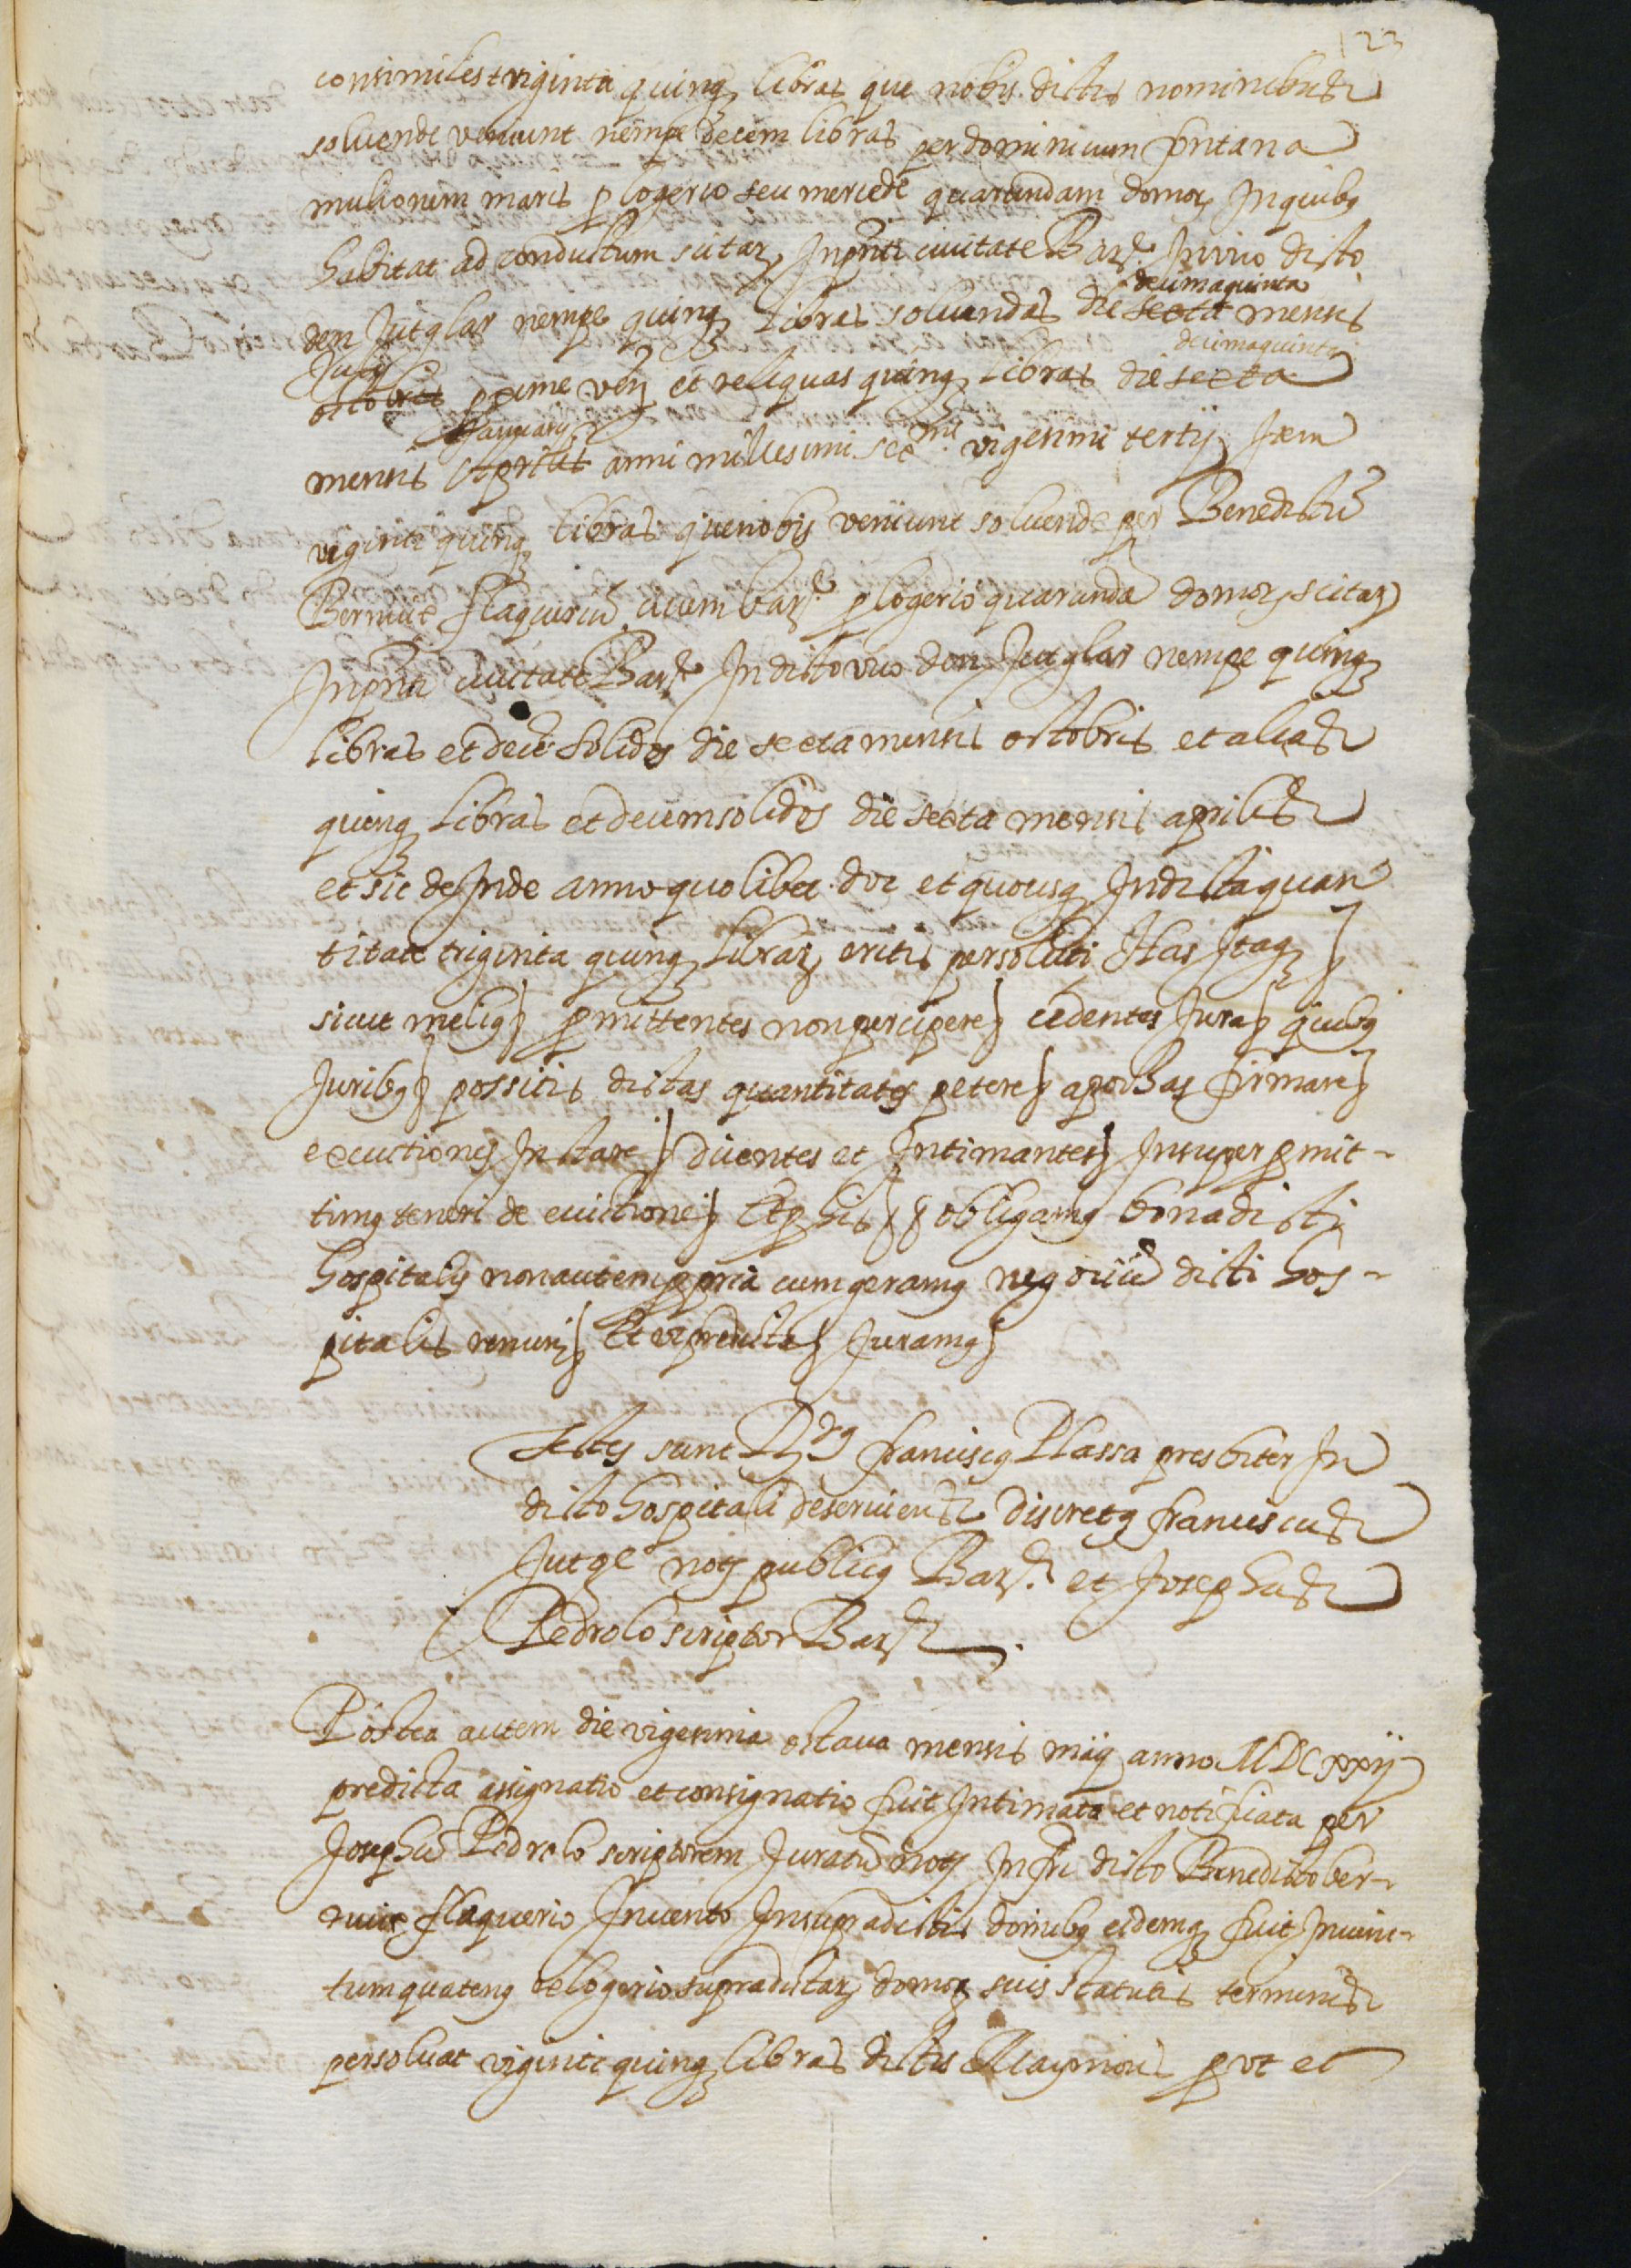 123
consimiles triginta quinq libras que nobis dictis nominibus
soluende veniunt nempe decem libras per dominicum fontana
mulionem maris p logerio seu mercede quarundam domoꝝ In quibꝰ
habitat ad conductum scitaꝝ In pnti ciuitate Barᵉ In vico dicto
decimaquinta
den Jutglar nempe quinq libras soluendas die sexta mensis
July decimaquinta
octobris pxime venᵗ et reliquas quinq libras die sexta
January
mensis Aprilis anni millesimi sexᵐⁱ vigesimi tertij Item
viginti quinq libras que nobis veniunt soluende per Benedictũ
Bernuc flaqueriũ ciuem barᵉ p logerio quarundã domoꝝ scitaꝝ
In pnti ciuitate Barᵉ In dicto vico den Jutglar nempe quinq
libras et decẽ solidos die sexta mensis octobris et alias
quinq libras et decem solidos die sexta mensis aprilis
et sic de Inde anno quolibet donec et quousq In dicta quan
titate triginta quinq libraꝝ eritis persoluti Has Itaq
sicut meliꝰ pmittentes non percipere cedentes Jura quibꝰ
Juribꝰ possitis dictas quantitates petere apochas firmare
executiones Instare dicentes et Intimantes Insuper pmit-
timꝰ teneri de euictione Et p his obligamꝰ bona dicti
hospitalis non autem ppria cum geramꝰ negociũ dicti hos-
pitalis renunᵗ Et vt predicta Juramꝰ
Testes sunt Rᵈꝰ franciscꝰ Plassa presbiter In
dicto hospitali deseruiens discretꝰ franciscus
Jutge notꝰ publicꝰ Barᵉ et Josephus
Pedrolo scriptor Barᵉ
Postea autem die vigesima octaua mensis maij anno MDCxxij
predicta assignatio et consignatio fuit Intimata et notificata per
Josephũ Pedrolo scriptorem Juratũ notꝰ Infrᵗⁱ dicto Benedicto ber-
nuic flaquerio Inuento In supradictis domibꝰ eidemq fuit Iniunc-
tum quatenꝰ de logerio supradictaꝝ domoꝝ suis statutis terminis
persoluat viginti quinq libras dictis Raymons p vt et